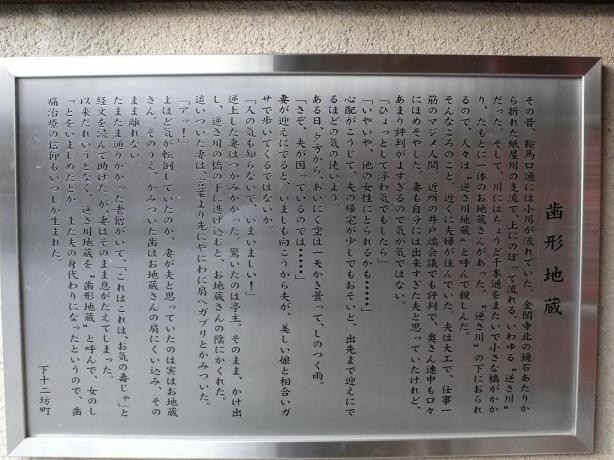 歯形地蔵
その昔、鞍馬口通には小川が流れていた。金閣寺北の鏡石あたりか
ら折れた紙屋川の支流で、上にのぼって流れる、いわゆる〝逆さ川〟
だった。そして、川にはちょうど千本通をまたいで小さな橋がかか
り、たもとに一体のお地蔵さんがあった。〝逆さ川〟の下におられ
るので、人々は〝逆さ川地蔵〟と呼んで親しんだ。
そんなころのこと、近くに夫婦が住んでいた。夫は大工で、仕事一
筋のマジメ人間。近所の井戸端会議でも評判で、奥さん連中も口々
にほめそやした。妻も自分には出来すぎた夫と思っていたけれど、
あまり評判がよすぎるので気が気ではない。
「ひょっとして浮気でもしたら」
「いやいや、他の女性にとられるかも・・・・・」
心配がこうじて、夫の帰宅が少しでもおそいと、出先まで迎えにで
るほどの気の使いよう。
ある日夕方から、あいにく空は一天かき曇って、しのつく雨。
「さぞ、夫が困っているのでは・・・・・」
妻が迎えにでると、いましも向こうから夫が、美しい娘と相合いガ
サで歩いてくるではないか。
「人の気も知らないで、いまいましい！」
逆上した妻はつかみかかった。驚いたのは亭主。そのまま、かけ出
し、逆さ川の橋の下に逃げ込むと、お地蔵さんの陰にかくれた。
追いついた妻は、言葉より先にやにわに肩へガブリとかみついた。
「アッ！」
よほど気が転倒していたのか、妻が夫と思っていたのは実はお地蔵
さん。そのうえ、かみついた歯はお地蔵さんの肩にくい込み、その
まま離れない。
たまたま通りかかった老僧がいて、「これはこれは、お気の毒じゃ」と
経文を読んで助けたが、妻はそのまま息がたえてしまった。
以来だれいうとなく、逆さ川地蔵を〝歯形地蔵〟と呼んで、女のし
っとをいましめたとか。また夫の身代わりになったというので、歯
痛治療の信仰もいつしか生まれた。
下十二坊町